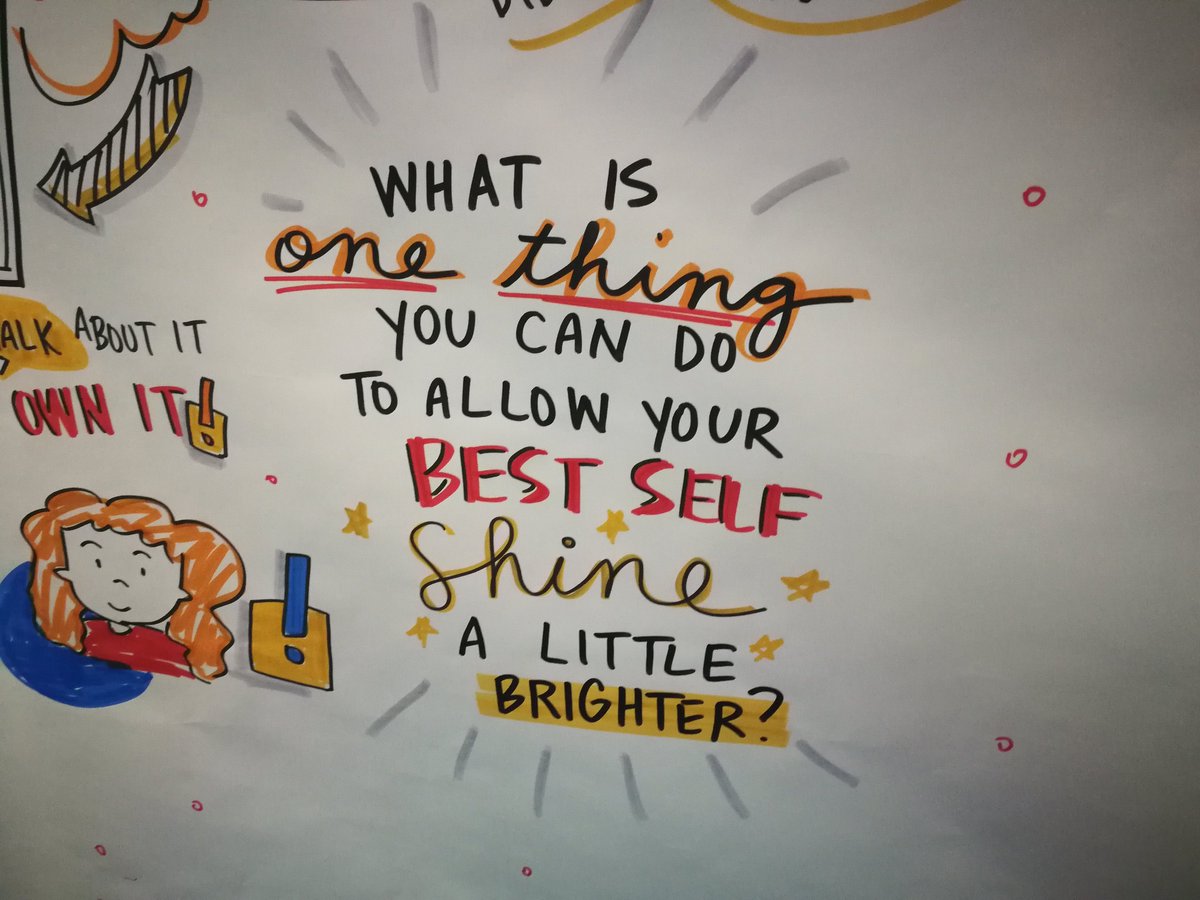 ALK ABOUT IT
OWN IT!
WHAT IS
one thing
YOU CAN DO
TO ALLOW YOUR
BEST SELF
Shine
A LITTLE
BRIGHTER?